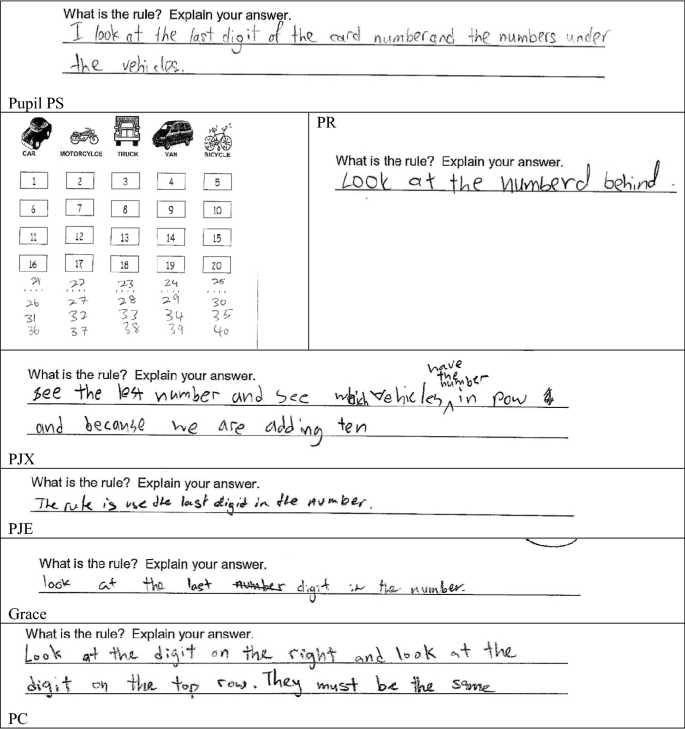 What is the rule? Explain your answer.
I look at the last digit of the card number and the numbers under
the vehicles.
Pupil PS
CAR MOTORCYLCE TRUCK VAN BICYCLE
1 2 3 4 5
6 7 8 9 10
11 12 13 14 15
16 17 18 19 20
21 22 23 24 25
.... ..... ..... ..... .....
26 27 28 29 30
31 32 33 34 35
36 37 38 39 40
PR
What is the rule? Explain your answer.
Look at the numberd behind.
What is the rule? Explain your answer.
have
the
number
see the last number and see which vehicles ^ in row
and because we are adding ten
PJX
What is the rule? Explain your answer.
The rule is use the last digit in the number.
PJE
What is the rule? Explain your answer.
look at the last number digit in the number.
Grace
What is the rule? Explain your answer.
Look at the digit on the right and look at the
digit on the top row. They must be the same
PC